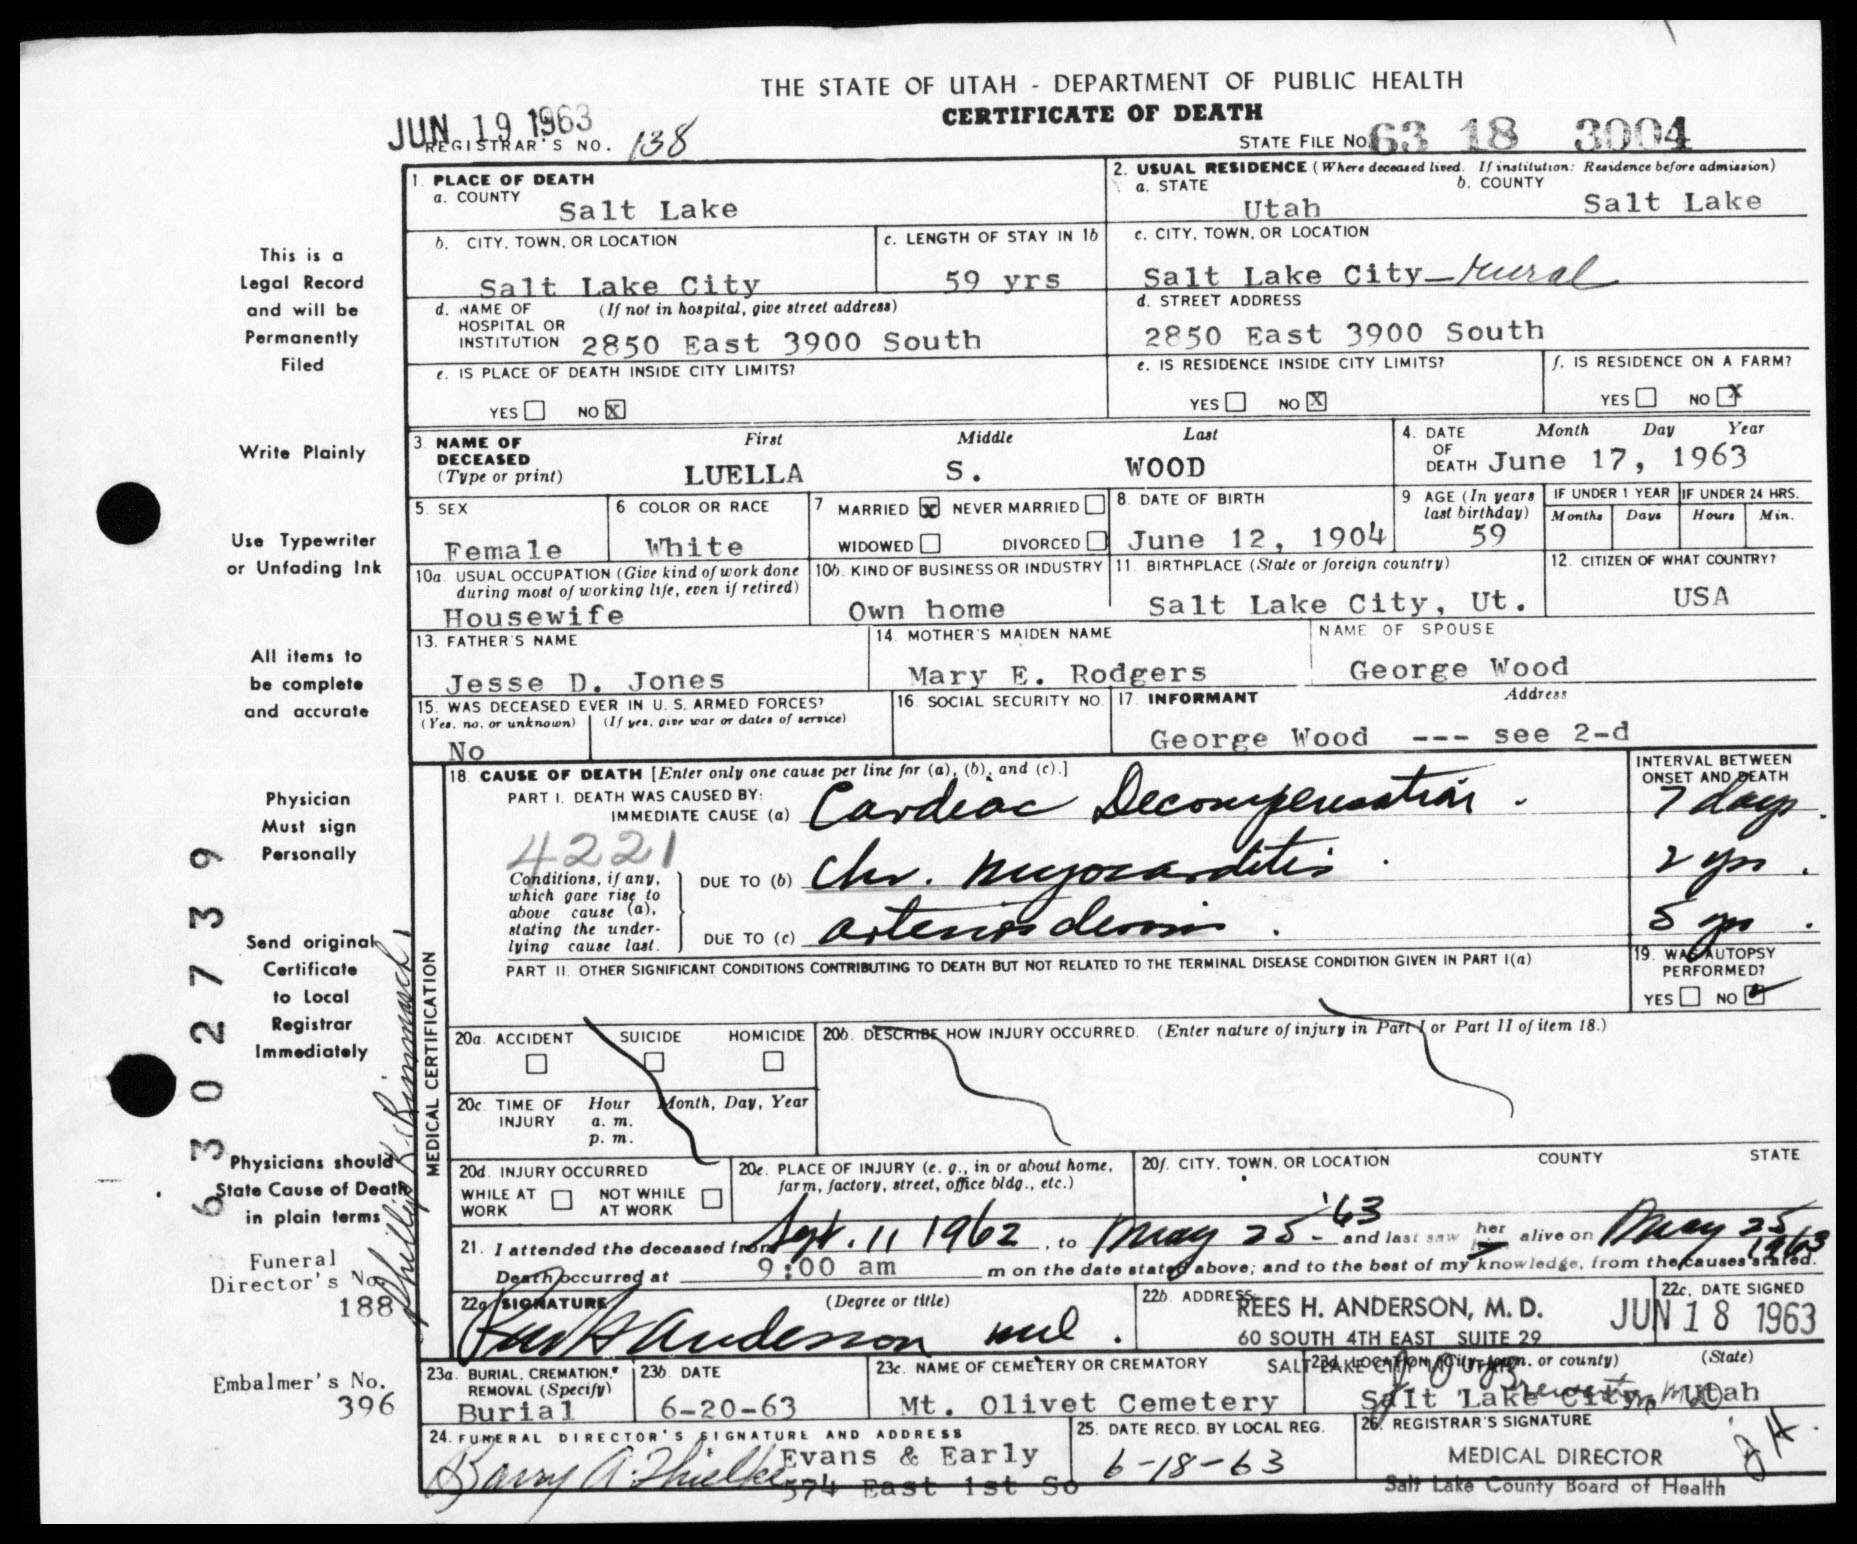 THE STATE OF UTAH - DEPARTMENT OF PUBLIC HEALTH
CERTIFICATE OF DEATH
JUN 19 1963
REGISTRAR'S NO. 138
STATE FILE NO. 63 18 3004
This is a
Legal Record
and will be
Permanently
Filed
Write Plainly
Use Typewriter
or Unfading Ink
All items to
be complete
and accurate
Physician
Must sign
Personally
Send original
Certificate
to Local
Registrar
Immediately
Physicians should
State Cause of Death
in plain terms
Funeral
Director's No.
188
Embalmer's No.
396
6302739
1. PLACE OF DEATH
a. COUNTY
Salt Lake
2. USUAL RESIDENCE (Where deceased lived. If institution: Residence before admission)
a. STATE b. COUNTY
Utah Salt Lake
b. CITY, TOWN, OR LOCATION
Salt Lake City
c. LENGTH OF STAY IN 1b
59 yrs
c. CITY, TOWN, OR LOCATION
Salt Lake City—rural
d. NAME OF (If not in hospital, give street address)
HOSPITAL OR
INSTITUTION 2850 East 3900 South
d. STREET ADDRESS
2850 East 3900 South
e. IS PLACE OF DEATH INSIDE CITY LIMITS?
YES NO X
e. IS RESIDENCE INSIDE CITY LIMITS?
YES NO X
f. IS RESIDENCE ON A FARM?
YES NO X
3. NAME OF DECEASED
(Type or print)
First Middle Last
LUELLA S. WOOD
4. DATE OF DEATH
Month Day Year
June 17, 1963
5. SEX
Female
6 COLOR OR RACE
White
7 MARRIED X NEVER MARRIED
WIDOWED DIVORCED
8. DATE OF BIRTH
June 12, 1904
9 AGE (In years
last birthday)
59
IF UNDER 1 YEAR IF UNDER 24 HRS.
Months Days Hours Min.
10a. USUAL OCCUPATION (Give kind of work done
during most of working life, even if retired)
Housewife
10b. KIND OF BUSINESS OR INDUSTRY
Own home
11. BIRTHPLACE (State or foreign country)
Salt Lake City, Ut.
12. CITIZEN OF WHAT COUNTRY?
USA
13. FATHER'S NAME
Jesse D. Jones
14. MOTHER'S MAIDEN NAME
Mary E. Rodgers
NAME OF SPOUSE
George Wood
15. WAS DECEASED EVER IN U. S. ARMED FORCES?
(Yes, no, or unknown) (If yes, give war or dates of service)
No
16. SOCIAL SECURITY NO.
17. INFORMANT Address
George Wood --- see 2-d
MEDICAL CERTIFICATION
18. CAUSE OF DEATH [Enter only one cause per line for (a), (b), and (c).]
INTERVAL BETWEEN
ONSET AND DEATH
PART I. DEATH WAS CAUSED BY:
IMMEDIATE CAUSE (a) Cardiac Decompensation. 7 days.
4221
Conditions, if any,
which gave rise to
above cause (a),
stating the under-
lying cause last.
DUE TO (b) Chr. Myocarditis. 2 yrs.
DUE TO (c) arteriosclerosis. 5 yrs.
PART II. OTHER SIGNIFICANT CONDITIONS CONTRIBUTING TO DEATH BUT NOT RELATED TO THE TERMINAL DISEASE CONDITION GIVEN IN PART I(a)
19. WAS AUTOPSY
PERFORMED?
YES NO ✓
20a. ACCIDENT SUICIDE HOMICIDE
20b. DESCRIBE HOW INJURY OCCURRED. (Enter nature of injury in Part I or Part II of item 18.)
20c. TIME OF INJURY
Hour Month, Day, Year
a. m.
p. m.
20d. INJURY OCCURRED
WHILE AT WORK NOT WHILE AT WORK
20e. PLACE OF INJURY (e. g., in or about home,
farm, factory, street, office bldg., etc.)
20f. CITY, TOWN, OR LOCATION COUNTY STATE
21. I attended the deceased from Sept. 11 1962, to May 25 - '63 and last saw her him alive on May 25 1963
Death occurred at 9:00 am m on the date stated above; and to the best of my knowledge, from the causes stated.
22a. SIGNATURE (Degree or title)
Rees H Anderson md.
22b. ADDRESS
REES H. ANDERSON, M. D.
60 SOUTH 4TH EAST SUITE 29
SALT LAKE CITY UTAH
22c. DATE SIGNED
JUN 18 1963
23a. BURIAL, CREMATION,
REMOVAL (Specify)
Burial
23b. DATE
6-20-63
23c. NAME OF CEMETERY OR CREMATORY
Mt. Olivet Cemetery
23d. LOCATION (City, town, or county) (State)
Salt Lake City, Utah
24. FUNERAL DIRECTOR'S SIGNATURE AND ADDRESS
Barry A. Thielke
Evans & Early
574 East 1st So
25. DATE RECD. BY LOCAL REG.
6-18-63
26. REGISTRAR'S SIGNATURE
MEDICAL DIRECTOR
Salt Lake County Board of Health